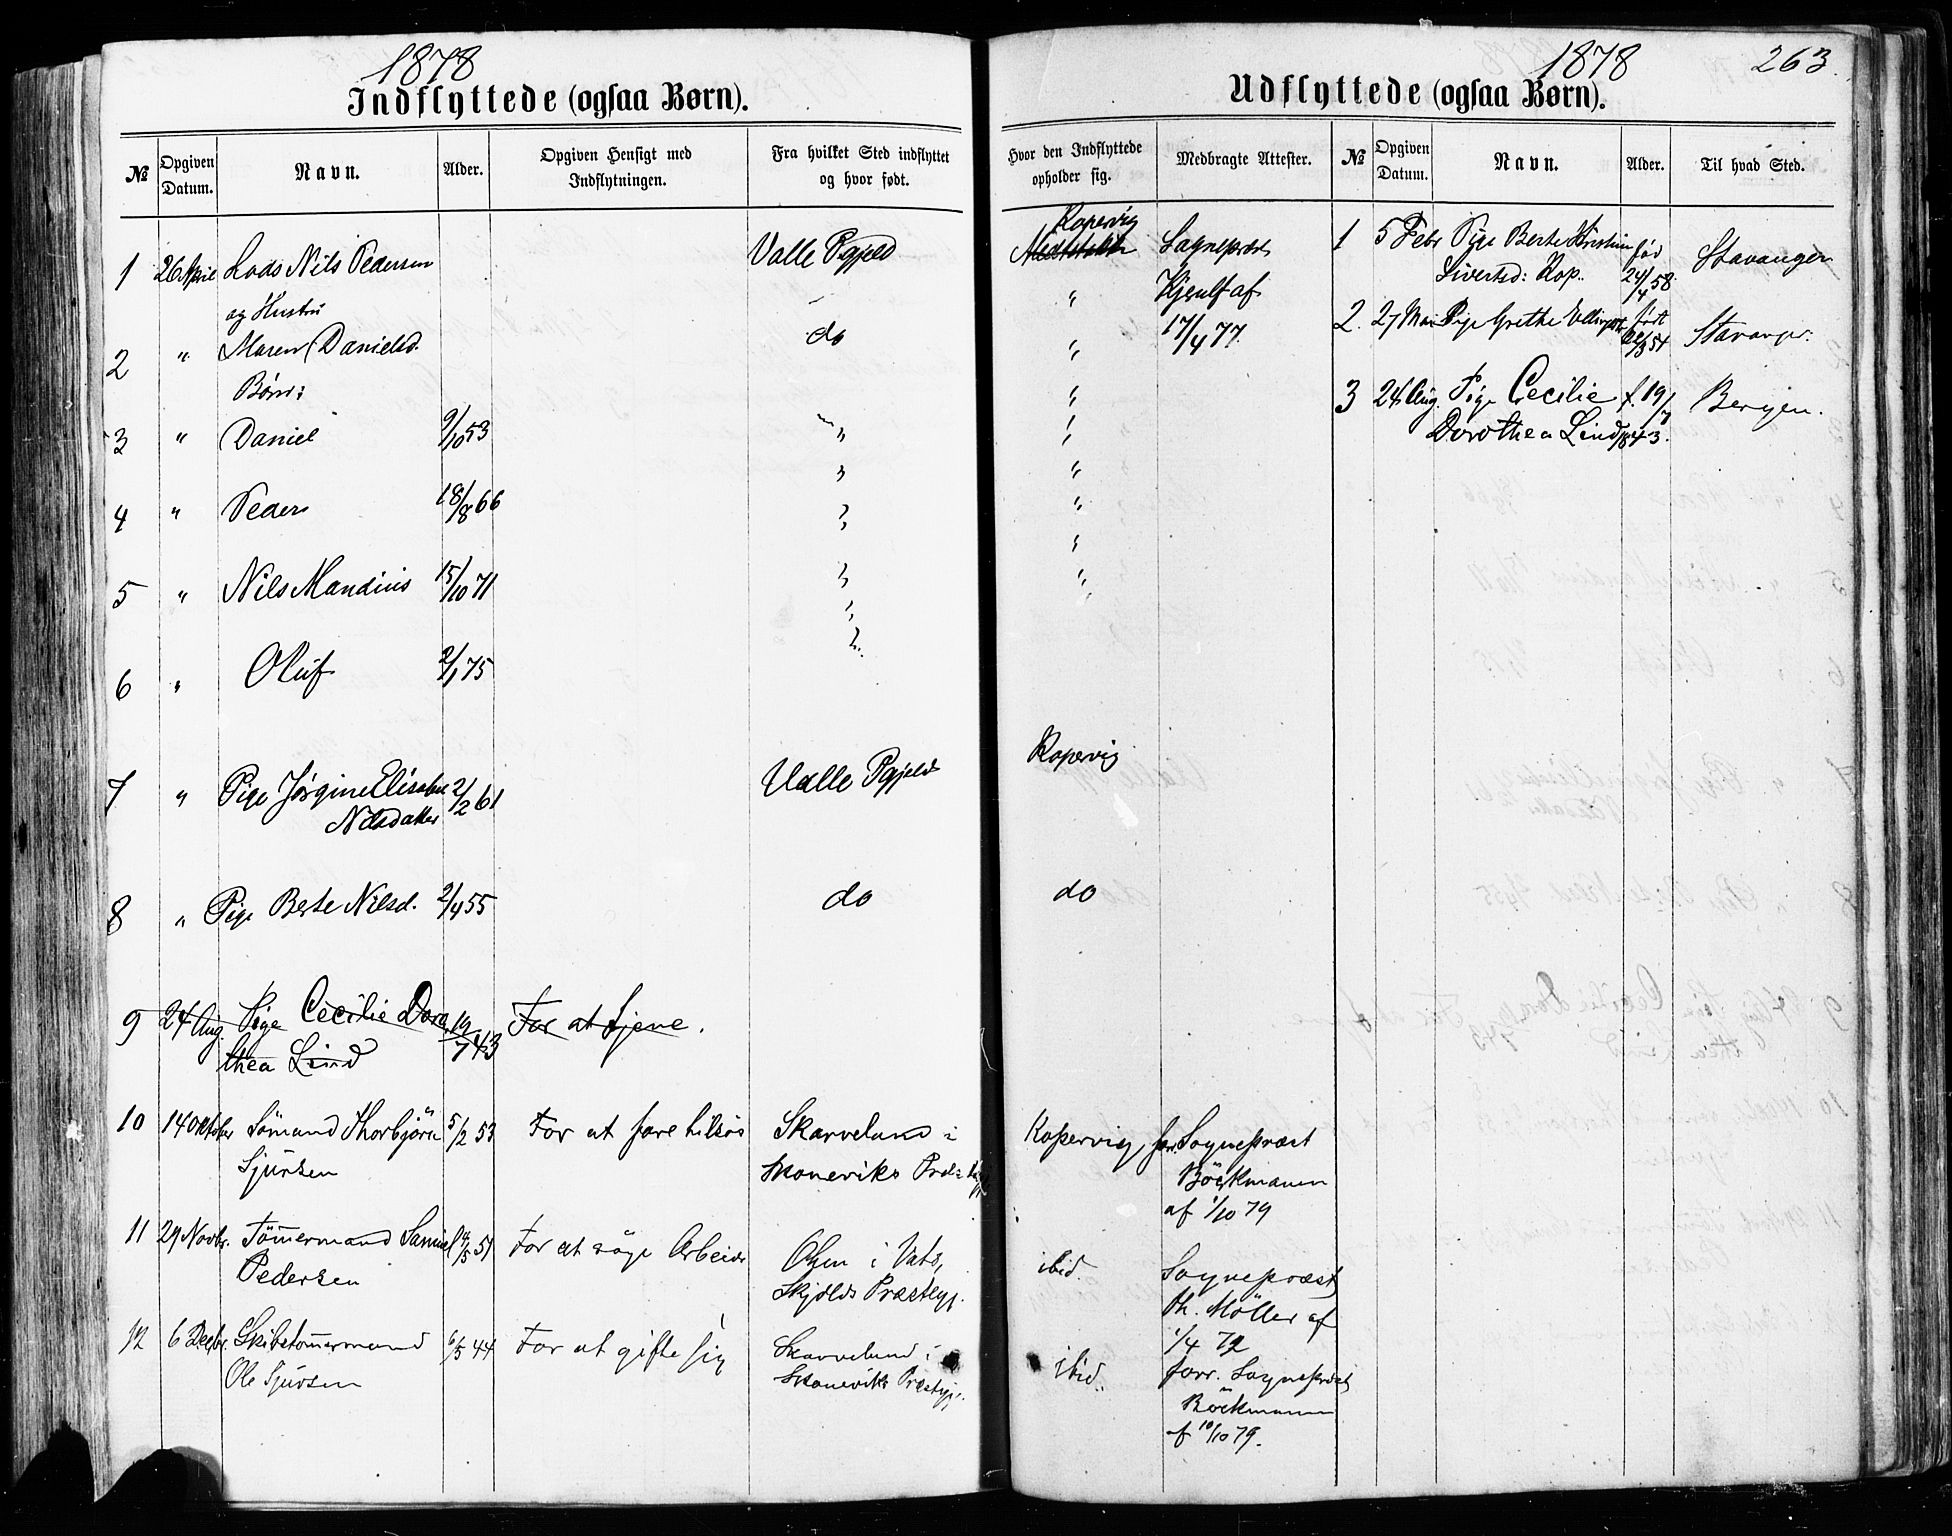 1878
Indflyttede (ogsaa Børn).
№ Opgiven Datum. Navn. Alder. Opgiven Hensigt med Indflytningen. Fra hvilket Sted indflyttet og hvor født.
1 26 April Lods Nils Pedersen Valle Pgjeld
og Hustru
2 " Maren Danielsd. do
Børn:
3 " Daniel 9/10 53 "
4 " Peder 18/8 66 "
5 " Nils Mandius 15/10 71 "
6 " Oluf 2/1 75 "
7 " Pige Jørgine Elisabe 2/2 61 Valle Pgjeld
Nilsdatter
8 " Pige Berte Nilsd. 2/4 55 do
9 24 Aug. Pige Cecilie Doro 19/7 43 For at tjene.
thea Lind
10 14 Oktober Sömand Thorbjörn 5/2 53 For at fare tilsös Skarveland i
Sjursen Skoneviks
11 29 Novbr. Tömermand Samuel 51 For at söge Arbeide Ølen i Vats,
Pedersen Skjolds Præstegj.
12 6 Decbr. Skibstömermand 6/5 44 For at gifte sig Skarveland i
Ole Sjursen Skoneviks Præstgj.
1878 263.
Udflyttede (ogsaa Børn).
Hvor den Indflyttede opholder sig. Medbragte Attester. № Opgiven Datum. Navn. Alder. Til hvad Sted.
Kopervig
Sognepræst 1 5 Febr Pige Berte Kristine fød Stavanger
" Kjeulf af Sivertsd: Kop. 24/4 58.
" 17/4 77. 2. 27 Mai Pige Grethe født Stavanger.
" 3 24 Aug. Pige Cecilie f. 19/7 Bergen.
" Dorothea Lind 1843.
"
"
"
"
Kopervig
do
Kopervig for. Sognepræst
Böckmann
af 1/10 79
ibid. Sognepræst
Th. Möller af
1/4 72
ibid. forr. Sognepræst
Böckmann
af 10/10 79.